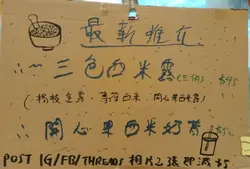 最新推介
三色西米露 (三個) $95
(楊枝甘露、薯蓉西米、開心果西米露)
開心果西米奶昔 $5
POST IG/FB/THREADS 相片乙張即減$5